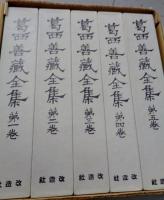 葛西善藏全集 第一巻
改造社
葛西善藏全集 第二巻
改造社
葛西善藏全集 第三巻
改造社
葛西善藏全集 第四巻
改造社
葛西善藏全集 第五巻
改造社